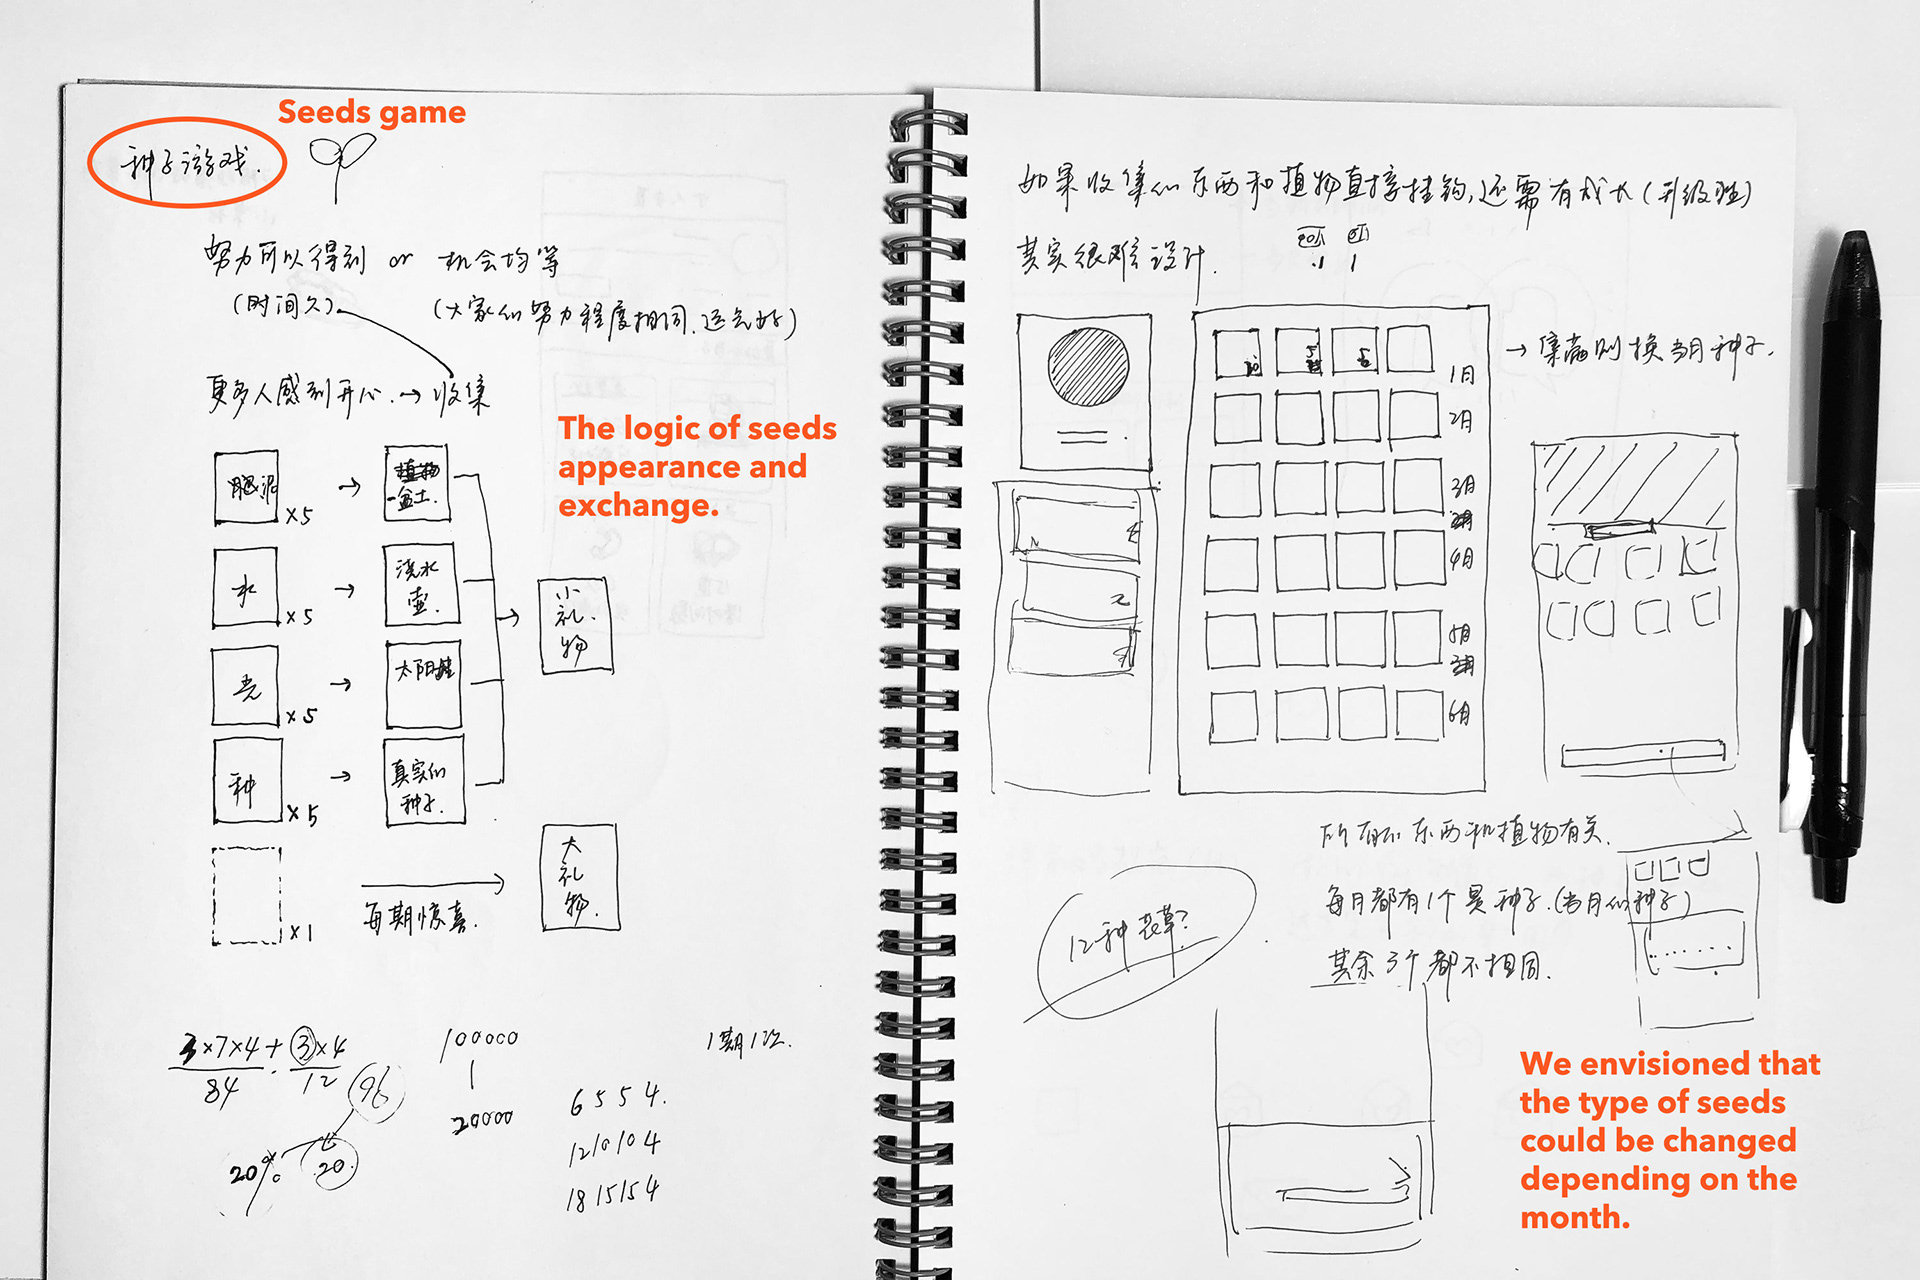 Seeds game
种子游戏.
努力可以得到 or 机会均等
(时间久) (大家的努力程度相同,运气好)
更多人感到开心. → 收集
The logic of seeds
appearance and
exchange.
肥泥 ×5 → 植物 一盆土.
水 ×5 → 浇水壶.
光 ×5 → 太阳
种 ×5 → 真实的种子.
小礼物
×1 每期惊喜. 大礼物.
3×7×4 + 3×4
84 12 96
20% 20.
100000
1
20000
1期1次.
6 5 5 4.
12 10 10 4
18 15 15 4
如果收集的东西和植物直接挂钩,还需有成长(升级性)
其实很难设计.
→ 集满则换当月种子.
1月
2月
3月
4月
5月
6月
1
2
3
所有的东西和植物有关.
每月都有1个是种子.(当月的种子)
其余3个都不相同.
12种花草?
We envisioned that
the type of seeds
could be changed
depending on the
month.